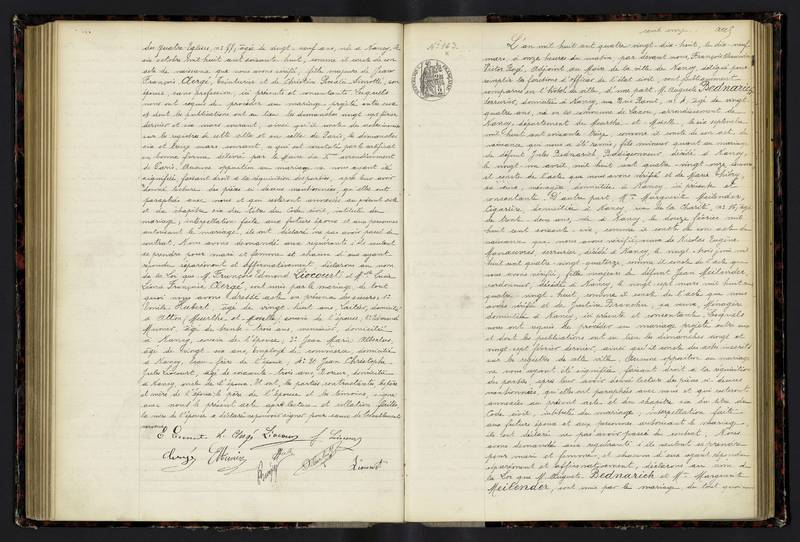 des Quatre Eglises, nº 77, âgée de vingt-neuf ans, née à Nancy, le
six octobre mil huit cent soixante huit, comme il conste de son
acte de naissance que nous avons vérifié, fille majeure de Jean
François Clergé, et de Christine son
épouse, sans profession, ici présents et consentants. Lesquels
nous ont requis de procéder au mariage projeté entre eux
et dont les publications ont eu lieu les dimanches vingt sept février
dernier et six mars courant, ainsi qu'il conste des actes inscrits
sur les registres de cette ville et en celle de Paris, les dimanches
six et treize mars courant, à qui est constaté par le certificat
en bonne forme délivré par le Maire du arrondissement
de Paris. Aucune opposition au mariage ne nous ayant été
signifiée, faisant droit à la réquisition des parties, après leur avoir
donné lecture des pièces ci dessus mentionnées, qu'elles ont
paraphées avec nous et qui resteront annexées au présent acte
et du chapitre six du titre du Code civil, intitulé du
mariage, interpellation faite aux futurs époux et aux personnes
autorisant le mariage, ils ont déclaré ne pas avoir passé de
contrat. Nous avons demandé aux requérants s'ils veulent
se prendre pour mari et femme et chacun d'eux ayant
répondu séparément et affirmativement, déclarons au nom
de la Loi que M. François Edmond Liocourt et Mlle
Françoise Clergé, sont unis par le mariage, de tout
quoi nous avons dressé acte en présence des sieurs: 1º
Emile Hubert, âgé de vingt huit ans, domicilié
à Atton (Meurthe-et-Moselle), cousin de l'épouse; 2º Edmond
Munier, âgé de trente-trois ans, menuisier, domicilié
à Nancy, cousin de l'épouse; 3º Jean Marie
âgé de vingt six ans, employé de commerce, domicilié
à Nancy, beau-frère de l'époux; 4º Jean Christophe
Jules Liocourt, âgé de soixante-trois ans, domicilié
à Nancy, oncle de l'époux. Et ont, les parties contractantes, les père
et mère de l'épouse, le père de l'époux et les témoins, signé
avec nous le présent acte après lecture et collation faite,
la mère de l'époux a déclaré ne pouvoir signer pour cause de
Liocourt
Clergé Munier
Liocourt
Nº 163.
L'an mil huit cent quatre-vingt-dix-huit, le dix-neuf
mars, à onze heures du matin, par devant nous, François
Victor Adjoint au Maire de la ville de Nancy, délégué pour
remplir les fonctions d'officier de l'état civil, ont publiquement
comparu en l'hôtel de ville, d'une part M. Auguste Bednarich
serrurier, domicilié à Nancy, rue nº 4, âgé de vingt
quatre ans, né en la commune de Laxou, arrondissement de
Nancy, département de Meurthe-et-Moselle, le six septembre
mil huit cent soixante treize, comme il conste de son acte de
naissance qui nous a été remis, fils mineur quant au mariage
de défunt Jules Bednarich, décédé à Nancy,
le vingt un avril mil huit cent quatre-vingt-onze, comme
il conste de l'acte que nous avons vérifié et de Marie
sa veuve, ménagère, domiciliée à Nancy, ici présente et
consentante. D'autre part, Mlle Marguerite Meilender,
cigarière, domiciliée à Nancy, rue de la Charité, nº 16, âgée
de vingt-deux ans, née à Nancy, le douze février mil
huit cent soixante-seize, comme il conste de son acte de
naissance que nous avons vérifié, veuve de Nicolas Eugène
serrurier, décédé à Nancy, le vingt-trois juin mil
huit cent quatre-vingt-quatorze, comme il conste de l'acte que
nous avons vérifié, fille majeure de défunt Jean Meilender,
cordonnier, décédé à Nancy, le vingt sept mars mil huit cent
quatre-vingt-huit, comme il conste de l'acte que nous
avons vérifié et de Justine sa veuve, ménagère
domiciliée à Nancy, ici présente et consentante. Lesquels
nous ont requis de procéder au mariage projeté entre eux
et dont les publications ont eu lieu les dimanches vingt et
vingt sept février dernier, ainsi qu'il conste des actes inscrits
sur les registres de cette ville. Aucune opposition au mariage
ne nous ayant été signifiée, faisant droit à la réquisition
des parties, après leur avoir donné lecture des pièces ci dessus
mentionnées, qu'elles ont paraphées avec nous et qui resteront
annexées au présent acte et du chapitre six du titre du
Code civil, intitulé du mariage, interpellation faite
aux futurs époux et aux personnes autorisant le mariage,
ils ont déclaré ne pas avoir passé de contrat. Nous
avons demandé aux requérants s'ils veulent se prendre
pour mari et femme, et chacun d'eux ayant répondu
séparément et affirmativement, déclarons au nom de
la Loi que M. Auguste Bednarich et Mlle Marguerite
Meilender, sont unis par le mariage, de tout quoi nous